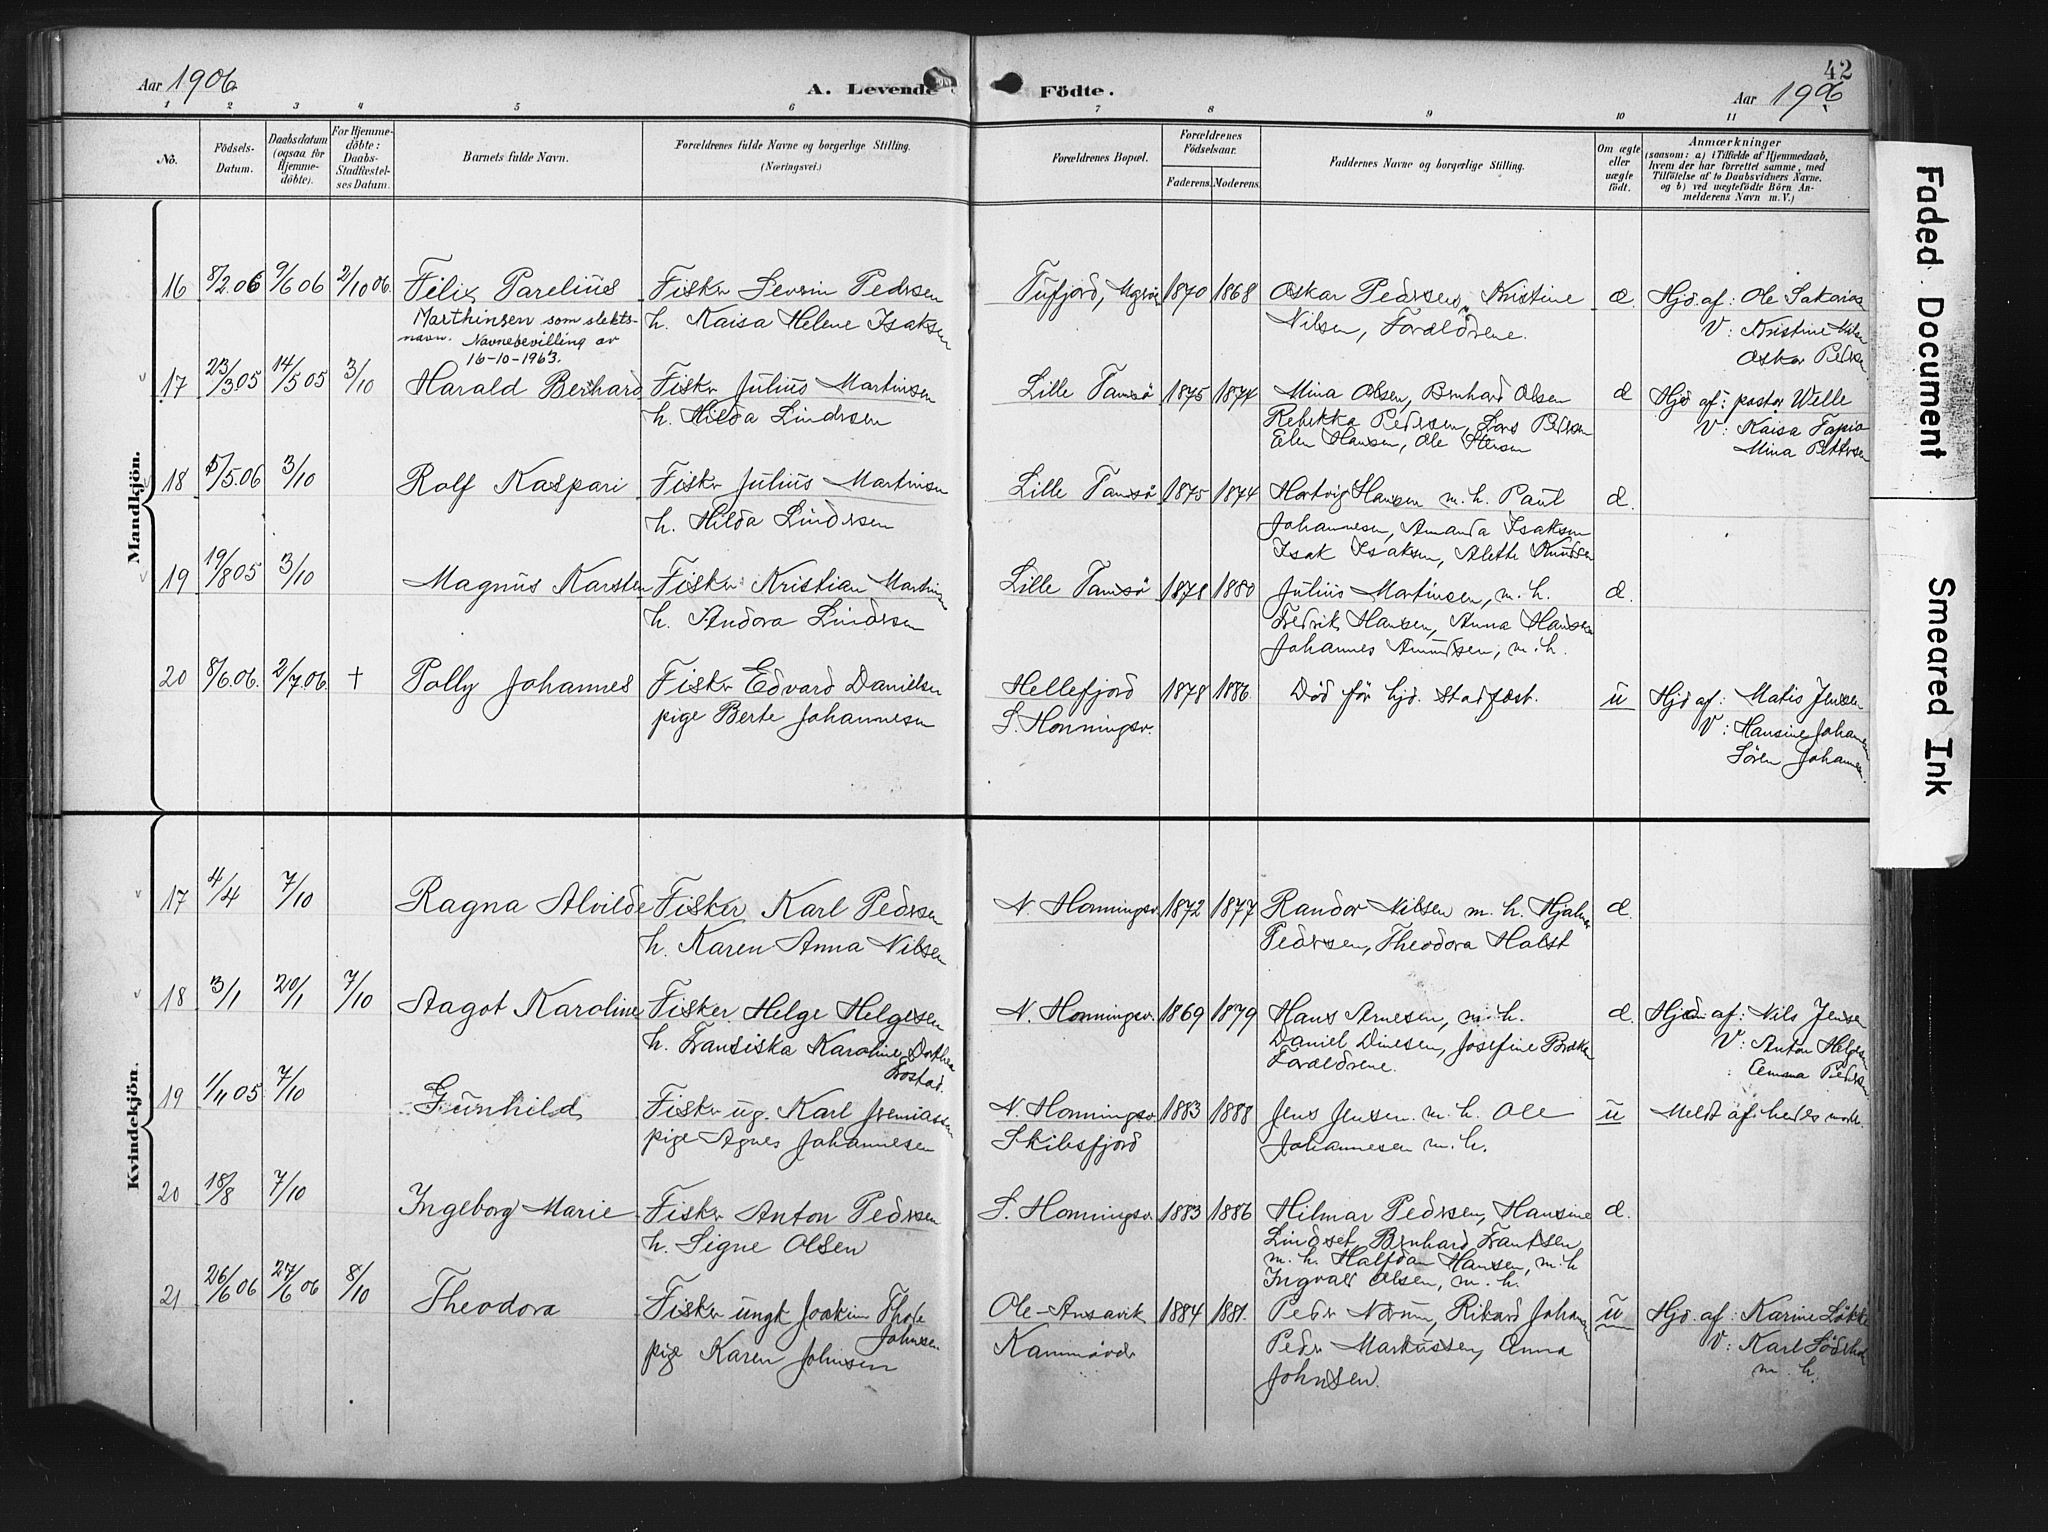 Aar 1906
A. Levende Födte.
42
Aar 1906
1 2 3 4 5 6 7 8 9 10 11
No.
Födsels-
Datum.
Daabsdatum
(ogsaa for
Hjemme-
döbte).
For Hjemme-
döbte:
Daabs-
Stadfæstel-
ses Datum.
Barnets fulde Navn.
Forældrenes fulde Navne og borgerlige Stilling.
(Næringsvei.)
Forældrenes Bopæl.
Forældrenes
Födselsaar.
Faderens. Moderens.
Faddernes Navne og borgerlige Stilling.
Om ægte
eller
uægte
födt.
Anmærkninger
(saasom: a) i Tilfælde af Hjemmedaab,
hvem der har forrettet samme, med
Tilföielse af to Daabsvidners Navne,
og b) ved uægtefödte Börn An-
melderens Navn m. V.)
Mandkjön.
16 8/2.06 9/6 06 2/10 06. Felix Parelius Fisker Severin Pedersen Tufjord, 1870 1868 Oskar Pedersen, Kristine æ. Hjd. af: Ole Sakarias
Marthinsen som slekts-
navn. Navnebevilling av
16-10-1963.
h. Kaisa Helene Isaksen
Nilsen, Forældrene.
V: Kristine Nilsen
Oskar Pedersen
17 23/3 05 14/5 05 3/10 Harald Bernhard Fisker Julius Martinsen Lille Tamsö 1875 1874 Mina Olsen, Bernhard Olsen Hjd af: pastor Welle
h. Hilda Lindersen
Rebekka Pedersen, Lars Pedersen
Elen Hansen, Ole
V: Kaisa Tapio
Mina Pettersen
18 5/5.06 3/10 Rolf Kaspari Fisker Julius Martinsen Lille Tamsö 1875 1874 Hartvig Hansen m. h. Paul
h. Hilda Lindersen
Johannesen, Amanda Isaksen
Isak Isaksen, Alette Knudsen
19 19/8 05 3/10 Magnus Karsten Fisker Kristian Martinsen Lille Tamsö 1878 1880 Julius Martinsen, m. h.
h. Andora Lindersen
Fredrik Hansen, Anna Hansen
Johannes Amundsen, m. h.
20 8/6.06. 2/7.06. + Polly Johannes Fisker Edvard Danielsen Hellefjord 1878 1886. Död för hjd. stadfæst. u Hjd af: Matis Jensen
pige Berte Johannesen
S. Honningsv.
V: Hansine Johannesen
Sören Johannesen.
Kvindekjön.
17 4/4 7/10 Ragna Alvilde Fisker Karl Pedersen N. Honningsv. 1872 1877 Randor Nilsen m. h. Hjalmar
h. Karen Anna Nilsen
Pedersen, Theodora Halst
18 3/1 20/1 7/10 Aagot Karoline Fisker Helge Helgesen N. Honningsv. 1869 1879 Hans Arnesen, m. h. Hjd. af: Nils Jensen
h. Fransiska Karoline Dorthea
Frostad.
Daniel Dinesen, Josefine
Forældrene.
V: Anton Helgesen
: Emma Pedersen
19 1/11 05 7/10 Gunhild Fisker ug. Karl Jeremiassen N. Honningsv. 1883 1888 Jens Jensen m. h. Ole u Meldt af: hendes moder.
pige Agnes Johannesen
Skibsfjord
Johannesen m. h.
20 18/8 7/10 Ingeborg Marie Fisker Anton Pedersen S. Honningsv. 1883 1886 Hilmar Pedersen, Hansine
h. Signe Olsen
Lindset, Bernhard Frantsen
m. h. Halfdan Hansen, m. h
Ingvald Olsen, m. h.
21 26/6 06 27/6 06 8/10 Theodora Fisker ungk Joakim Thode 1884 1881. Peder Norum, Rikard Johansen u Hjd. af: Karine
Johnsen
pige Karen Johnsen
Kamöver
Peder Markussen, Anna
Johnsen.
V: Karl
m. h.
Faded Document
Smeared Ink